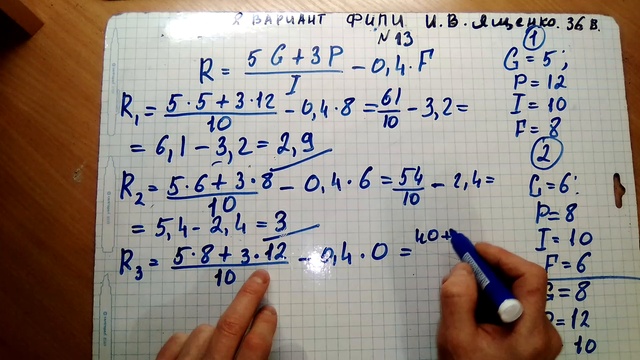 2 ВАРИАНТ ФИПИ И.В. Ященко. 36 В.
N13
R = (5G + 3P)/I - 0,4·F
R₁ = (5·5+3·12)/10 - 0,4·8 = 61/10 - 3,2 =
= 6,1 - 3,2 = 2,9
R₂ = (5·6+3·8)/10 - 0,4·6 = 54/10 - 2,4 =
= 5,4 - 2,4 = 3
R₃ = (5·8+3·12)/10 - 0,4·0 = 40+
1
G = 5;
P = 12
I = 10
F = 8
2
G = 6:
P = 8
I = 10
F = 6
G = 8
= 12
10